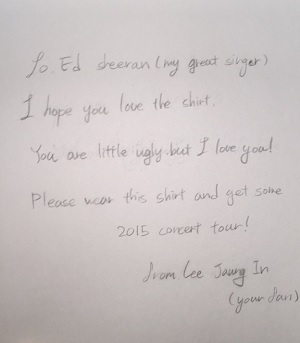 To. Ed sheeran (my great singer)
I hope you love the shirt.
You are little ugly but I love you!
Please wear this shirt and get some
2015 concert tour!
from. Lee Jaung In
(your fan)